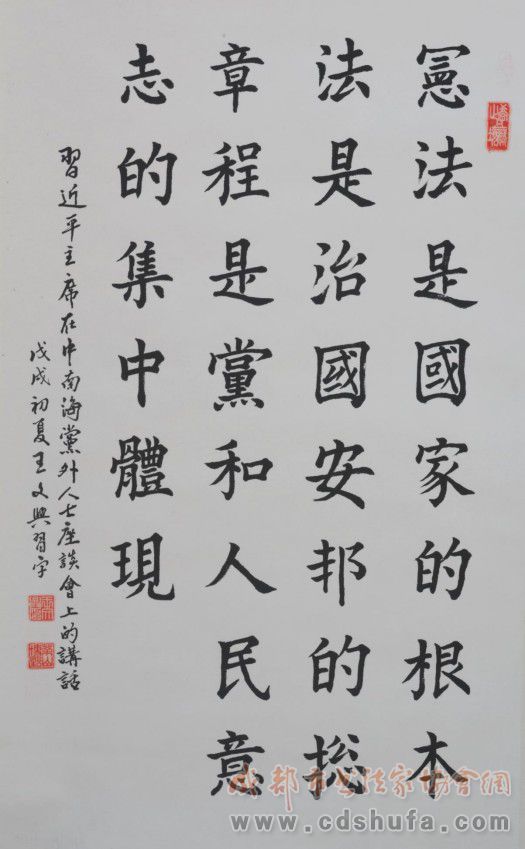 憲法是國家的根本
法是治國安邦的揔
章程是黨和人民意
志的集中體現
習近平主席在中南海黨外人士座談會上的講話
戊戌初夏王文興習字
成都市书法家协会網
www.cdshufa.com